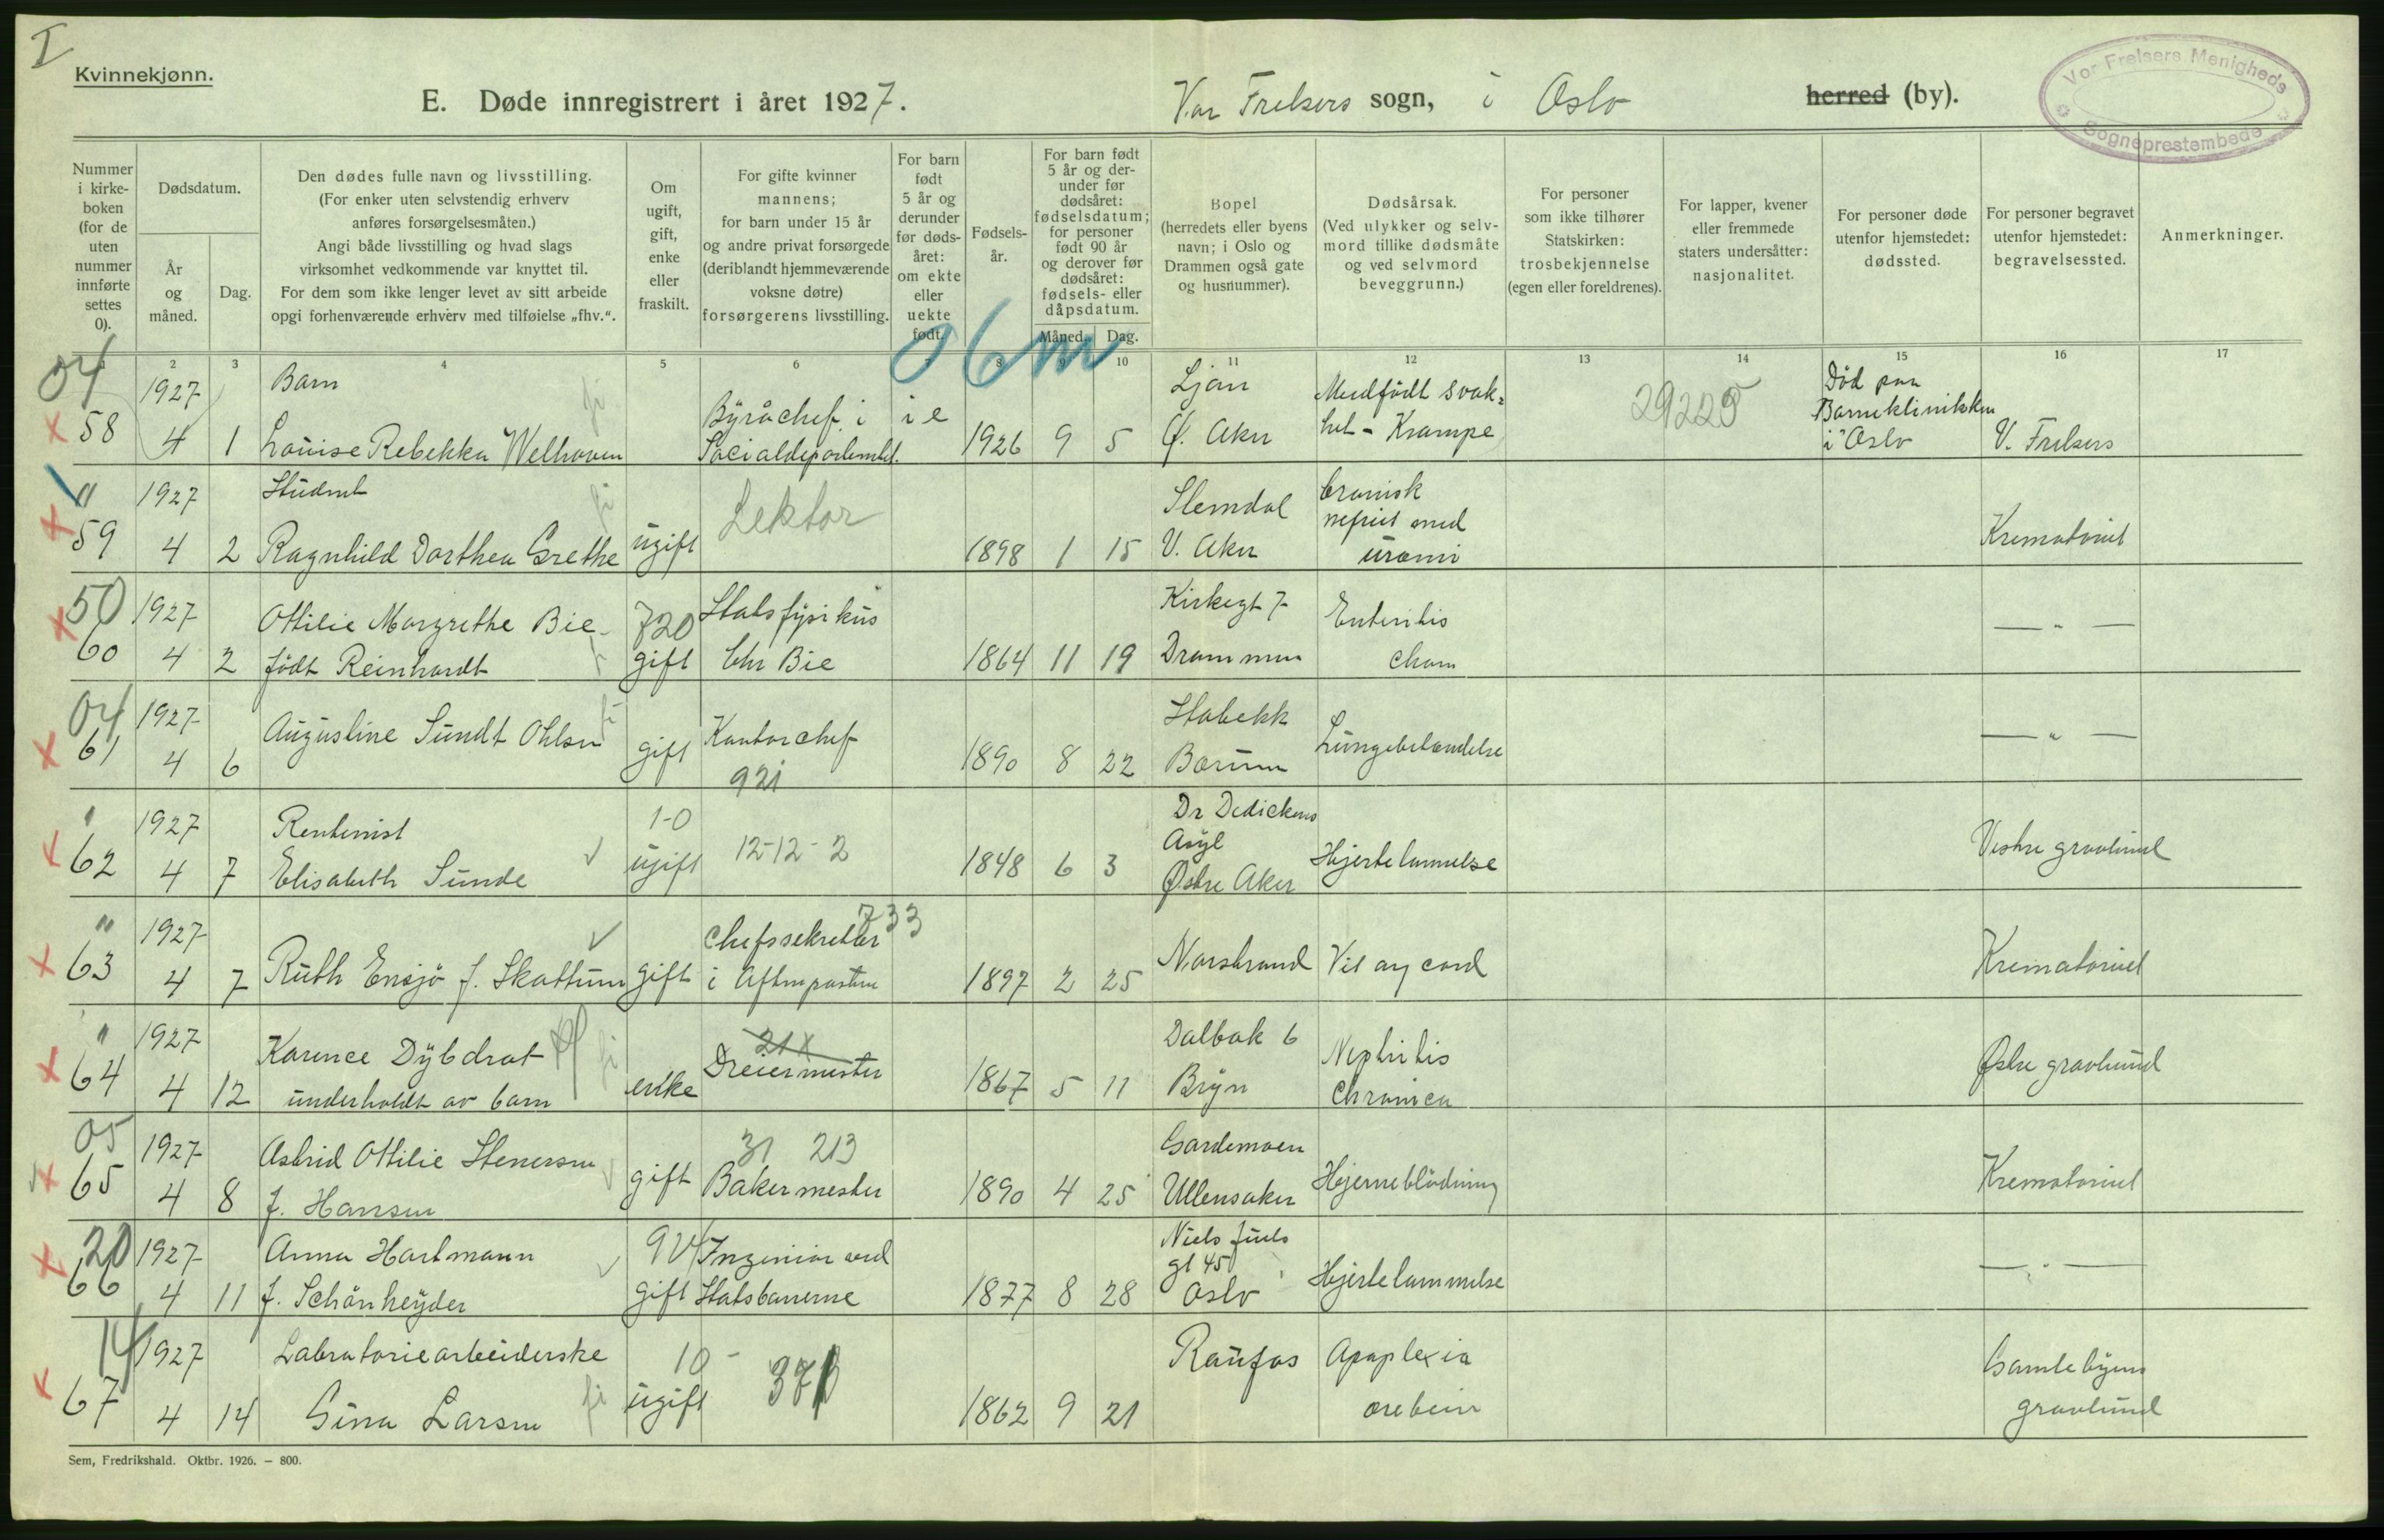 I
Kvinnekjønn.
E. Døde innregistrert i året 1927.
Vor Frelsers sogn, i Oslo herred (by).
Vor Frelsers Menigheds Sogneprestembede
Nummer i kirkeboken (for de uten nummer innførte settes 0).
Dødsdatum.
År og måned.
Dag.
Den dødes fulle navn og livsstilling.
(For enker uten selvstendig erhverv
anføres forsørgelsesmåten.)
Angi både livsstilling og hvad slags
virksomhet vedkommende var knyttet til.
For dem som ikke lenger levet av sitt arbeide
opgi forhenværende erhverv med tilføielse „fhv.“.
Om ugift, gift, enke eller fraskilt.
For gifte kvinner
mannens;
for barn under 15 år
og andre privat forsørgede
(deriblandt hjemmeværende
voksne døtre)
forsørgerens livsstilling.
For barn født 5 år og derunder før dødsåret: om ekte eller uekte født.
Fødselsår.
For barn født 5 år og derunder før dødsåret: fødselsdatum; for personer født 90 år og derover før dødsåret: fødsels- eller dåpsdatum.
Måned. Dag.
Bopel
(herredets eller byens
navn; i Oslo og
Drammen også gate
og husnummer).
Dødsårsak.
(Ved ulykker og selvmord tillike dødsmåte
og ved selvmord
beveggrunn.)
For personer
som ikke tilhører
Statskirken:
trosbekjennelse
(egen eller foreldrenes).
For lapper, kvener
eller fremmede
staters undersåtter:
nasjonalitet.
For personer døde
utenfor hjemstedet:
dødssted.
For personer begravet
utenfor hjemstedet:
begravelsessted.
Anmerkninger.
2 3 4 5 6 8 9 10 11 12 13 14 15 16 17
06m
04 1927 Barn Ljan Medfødt svak= 29225 Død paa
58 4 1 Louise Rebekka Welhaven Byråchef i Socialdepartemtet. i e 1926 9 5 Ø. Aker het - Krampe Barneklinikken i Oslo V. Frelsers
" 1927 Student Lektor Slemdal Cronisk
59 4 2 Ragnhild Dorthea Grethe ugift 1898 1 15 V. Aker nefrit med uræmi Krematoriet
50 1927 Ottilie Margrethe Bie 720 Statsfysikus Kirkegt 7 Enteritis
60 4 2 født Reinhardt gift Chr Bie 1864 11 19 Drammen chron — " —
04 1927 Augustine Sundt Ohlsen Kontorchef Stabekk
61 4 6 gift 921 1890 8 22 Bærum Lungebetændelse — " —
" 1927 Rentenist 1-0 12-12-2 Dr Dedickens Asyl
62 4 7 Elisabeth Sunde ugift 1848 6 3 Østre Aker Hjertelammelse Vestre gravlund
" 1927 733 Chefssekretær
63 4 7 Ruth Ensjø f. Skattum gift i Aftenposten 1897 2 25 Norstrand Vit org cord Krematoriet
" 1927 Karence Dybdrat 21X Dreiermester Dalbak 6 Nephritis
64 4 12 underholdt av barn enke 1867 5 11 Bryn Chronica Østre gravlund
05 1927 Astrid Ottilie Stenersen 31 213 Gardemoen
65 4 8 f. Hansen gift Bakermester 1890 4 25 Ullensaker Hjerneblødning Krematoriet
20 1927 Anna Hartmann Ingeniør ved Niels Juels gt 45
66 4 11 f. Schönheyder gift Statsbanerne 1877 8 28 Oslo Hjertelammelse — " —
14 1927 Labratoriearbeiderske 10 Raufos Apoplexia
67 4 14 Gina Larsen ugift 1862 9 21 Gamlebyens gravlund
Sem, Fredrikshald. Oktbr. 1926. – 800.